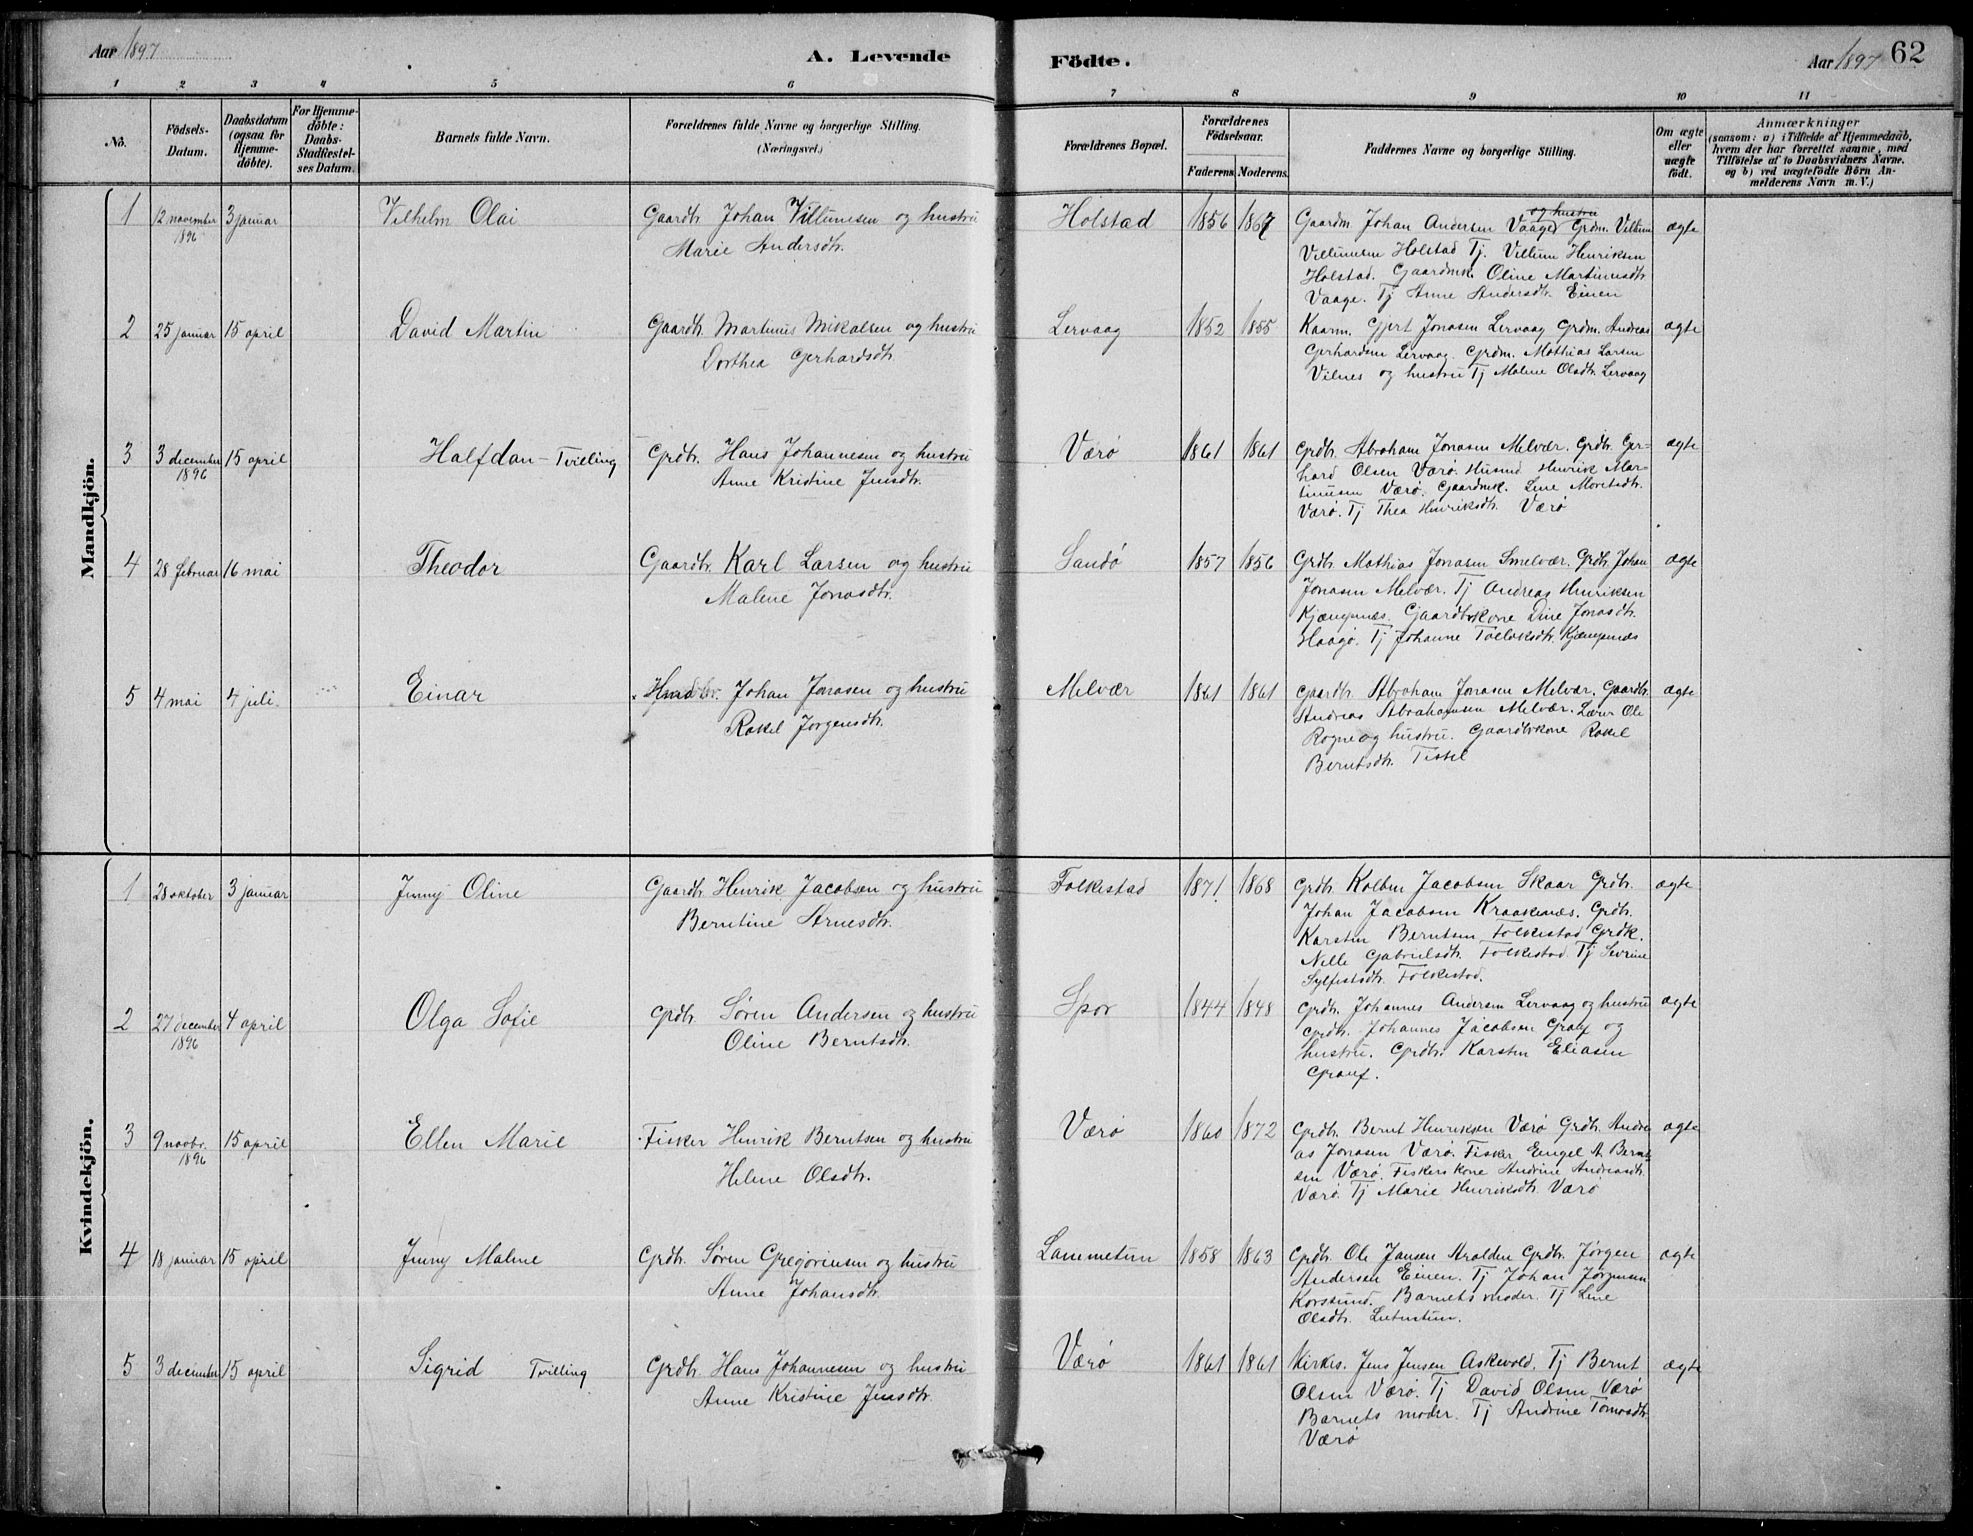 Aar 1897
A. Levende
Födte.
Aar 1897 62
1 2 3 4 5 6 7 8 9 10 11
No.
Födsels-
Datum.
Daabsdatum
(ogsaa for
Hjemme-
döbte).
For Hjemme-
döbte:
Daabs-
Stadfæstel-
ses Datum.
Barnets fulde Navn.
Forældrenes fulde Navne og borgerlige Stilling.
(Næringsvei.)
Forældrenes Bopæl.
Forældrenes
Födselsaar.
Faderens Moderens
Faddernes Navne og borgerlige Stilling.
Om ægte
eller
uægte
födt.
Anmærkninger
(saasom: a) i Tilfælde af Hjemmedaab,
hvem der har forrettet samme, med
Tilföielse af to Daabsvidners Navne.
og b) ved uægtefödte Börn An-
melderens Navn m. V.)
Mandkjön.
1 12 november 3 januar Vilhelm Olai Gaardbr. Johan Villumsen og hustru Holstad 1856 1867 ægte
1896
Marie Andersdtr.
og hustru
Gaardm Johan Andersen Vaage Grdm. Villum
Villumsen Holstad Tj. Villum Henriksen
Holstad. Gaardmk. Oline Martinusdtr
Vaage. Tj Anne Andersdtr. Einen
2 25 januar 15 april David Martin Gaardbr. Martinus Mikalsen og hustru Lervaag 1852 1855 ægte
Dorthea Gerhardsdtr.
Kaarm. Gjert Jonasen Lervaag Grdm. Andreas
Gerhardsen Lervaag. Grdm. Mathias Larsen
Vilnes og hustru Tj Malene Olsdtr. Lervaag
3 3 december 15 april Halfdan - Tvilling Grdbr. Hans Johannesen og hustru Værö 1861 1861 ægte
1896
Anne Kristine Jensdtr.
Grdbr. Abraham Jonasen Melvær. Grdbr. Ger-
hard Olsen Værö. Husmd Henrik Mar-
tinusen Værö. Gaardmk. Line
Værö. Tj Thea Henriksdtr. Værö
4 28 februar 16 mai Theodor Gaardbr. Karl Larsen og hustru Sandö 1857 1856 ægte
Malene Jonasdtr.
Grdbr. Mathias Jonasen Smelvær. Grdbr. Johan
Jonasen Melvær. Tj Andreas Henriksen
Kjæmpenæs. Gaardbrkone Dine Jonasdtr.
Haagö. Tj Johanne Tollaksdtr. Kjæmpenæs
5 4 mai 4 juli Einar Johan Jonasen og hustru Melvær 1861 1861 ægte
Rakel Jörgensdtr.
Gaardbr. Abraham Jonasen Melvær. Gaardbr.
Andreas Abrahamsen Melvær. Lærer Ole
Rogne og hustru. Gaardbrkone Rakel
Berntsdtr. Tistel
Kvindekjön.
1 28 oktober 3 januar Jenny Oline Gaardbr. Henrik Jacobsen og hustru Folkestad 1871. 1868 ægte
Berntine Arnesdtr.
Grdbr. Kolben Jacobsen Skaar Grdbr.
Johan Jacobsen Kraakenæs. Grdbr.
Karsten Berntsen Folkestad Grdk.
Nelle Gabrielsdtr. Folkestad Tj Sevrine
Sylfestsdtr. Folkestad.
2 27 december 4 april Olga Sofie Grdbr. Sören Andersen og hustru Spor 1844 1848 ægte
1896
Oline Berntsdtr.
Grdbr. Johannes Andersen Lervaag og hustru
Grdbr. Johannes Jacobsen og
hustru. Grdbr. Karsten Eliasen
3 9 novbr. 15 april Ellen Marie Fisker Henrik Berntsen og hustru Værö 1860 1872 ægte
1896
Helene Olsdtr.
Grdbr. Bernt Henriksen Værö Grdbr. Andre
as Jonasen Værö. Fisker Engel A. Bernt-
sen Værö. Fiskerskone Andrine Andreasdtr.
Værö. Tj Marie Henriksdtr. Værö
4 18 januar 15 april Jenny Malene Grdbr. Sören Gregoriusen og hustru Lammetun 1858 1863 ægte
Anne Johansdtr.
Grdbr. Ole Jansen Aralden Grdbr. Jörgen
Andersen Einen. Tj Johan Jörgensen
Korssund. Barnets moder. Tj Line
Olsdtr.
5 3 december 15 april Sigrid Tvilling Grdbr. Hans Johannesen og hustru Værö 1861 1861 ægte
Anne Kristine Jensdtr.
Kirkes. Jens Jensen Askevold. Tj Bernt
Olsen Værö. Tj David Olsen Værö
Barnets moder. Tj Andrine Tomasdtr.
Værö